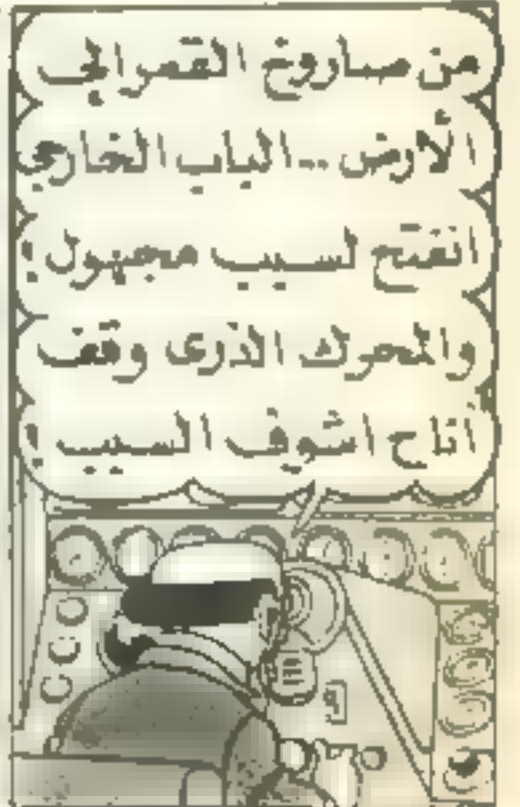 من صاروخ القمر الى
الأرض .. الباب الخارجي
انفتح لسبب مجهول !
والمحرك الذرى وقف
أناح اشوف السبب !